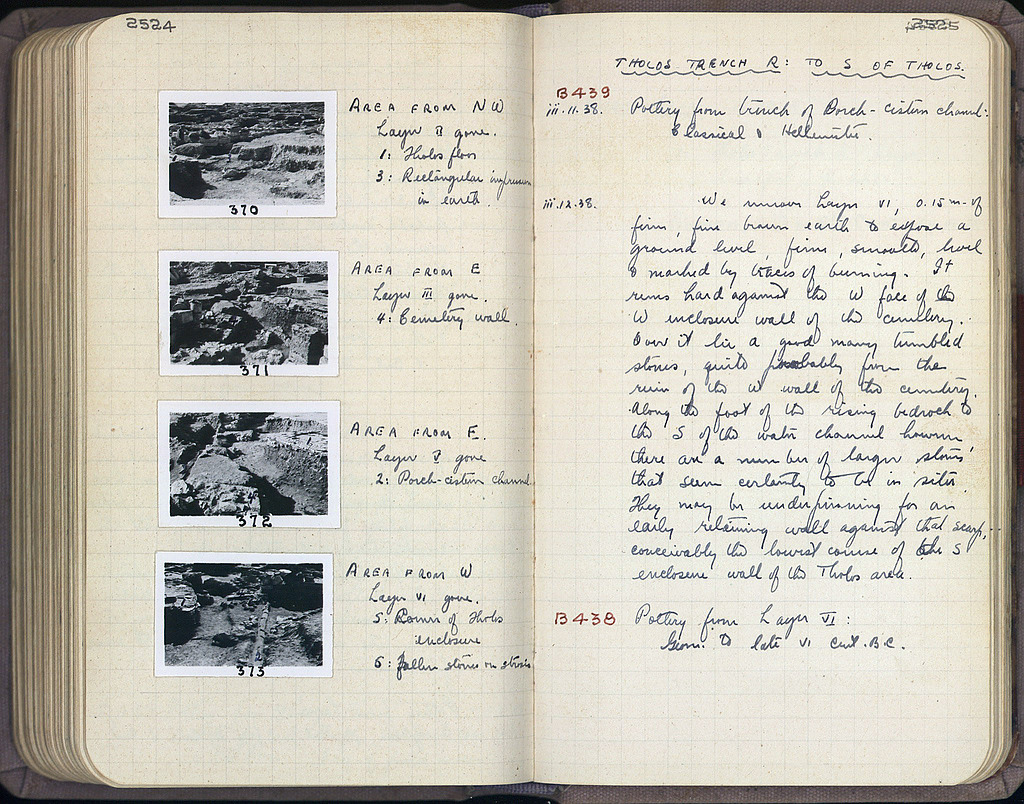 2524
AREA FROM NW
Layer V gone.
1: Tholos floor
3: Rectangular impression
in earth.
370
AREA FROM E
Layer III gone.
4: Cemetery wall.
371
AREA FROM E.
Layer V gone
2: Porch-cistern channel.
372
AREA FROM W
Layer VI gone.
5: Corner of Tholos
enclosure
6: fallen stones on strosis
373
2525
THOLOS TRENCH R: TO S OF THOLOS.
B439
iii.11.38. Pottery from trench of Porch-cistern channel:
Classical & Hellenistic.
iii.12.38. We remove Layer VI, 0.15 m. of
firm, fine brown earth to expose a
ground level, firm, smooth, level
& marked by traces of burning. It
runs hard against the W face of the
W enclosure wall of the cemetery.
Over it lie a good many tumbled
stones, quite probably from the
ruin of the W wall of the cemetery.
Along the foot of the rising bedrock to
the S of the water channel however
there are a number of larger stones
that seem certainly to be in situ.
They may be underpinning for an
early retaining wall against that scarp,
conceivably the lowest course of the S
enclosure wall of the Tholos area.
B438 Pottery from Layer VI:
Geom. to late VI cent. B.C.